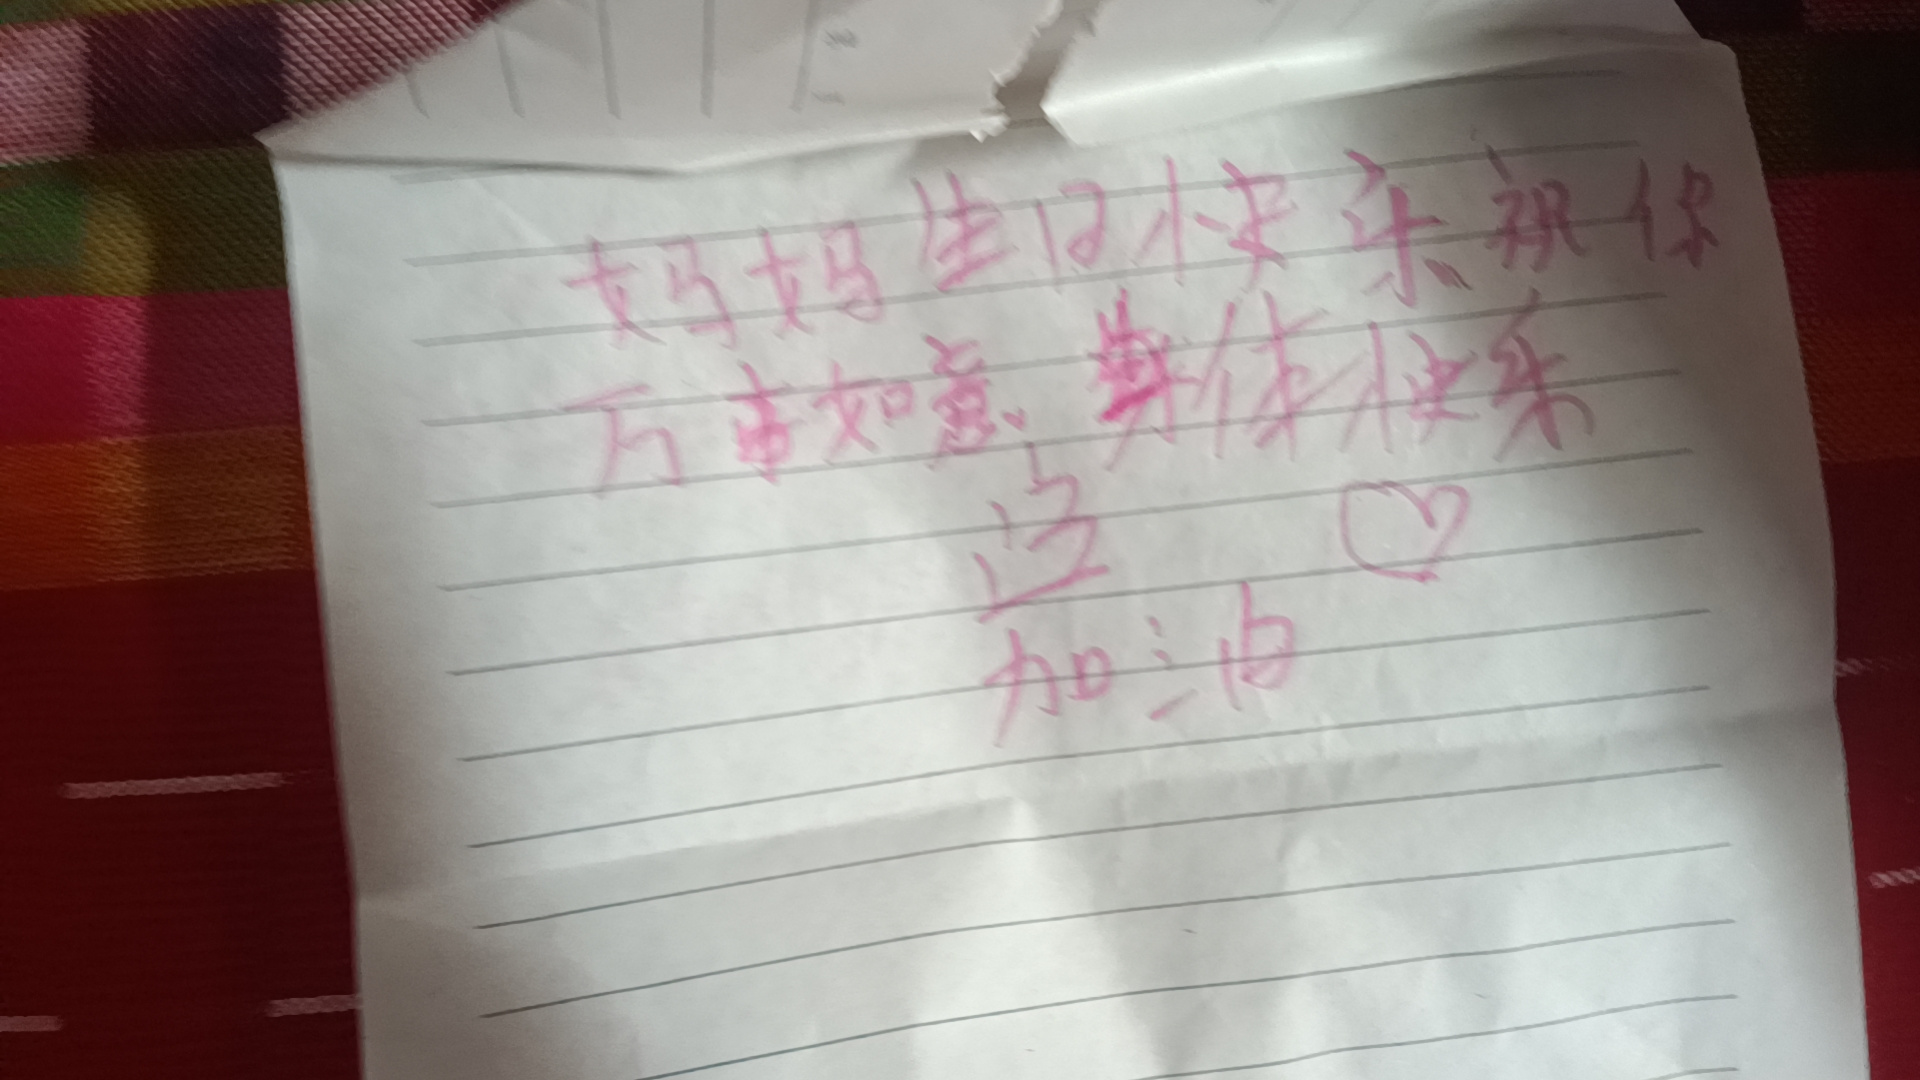 妈妈生日快乐祝你
万事如意、身体快乐
加油